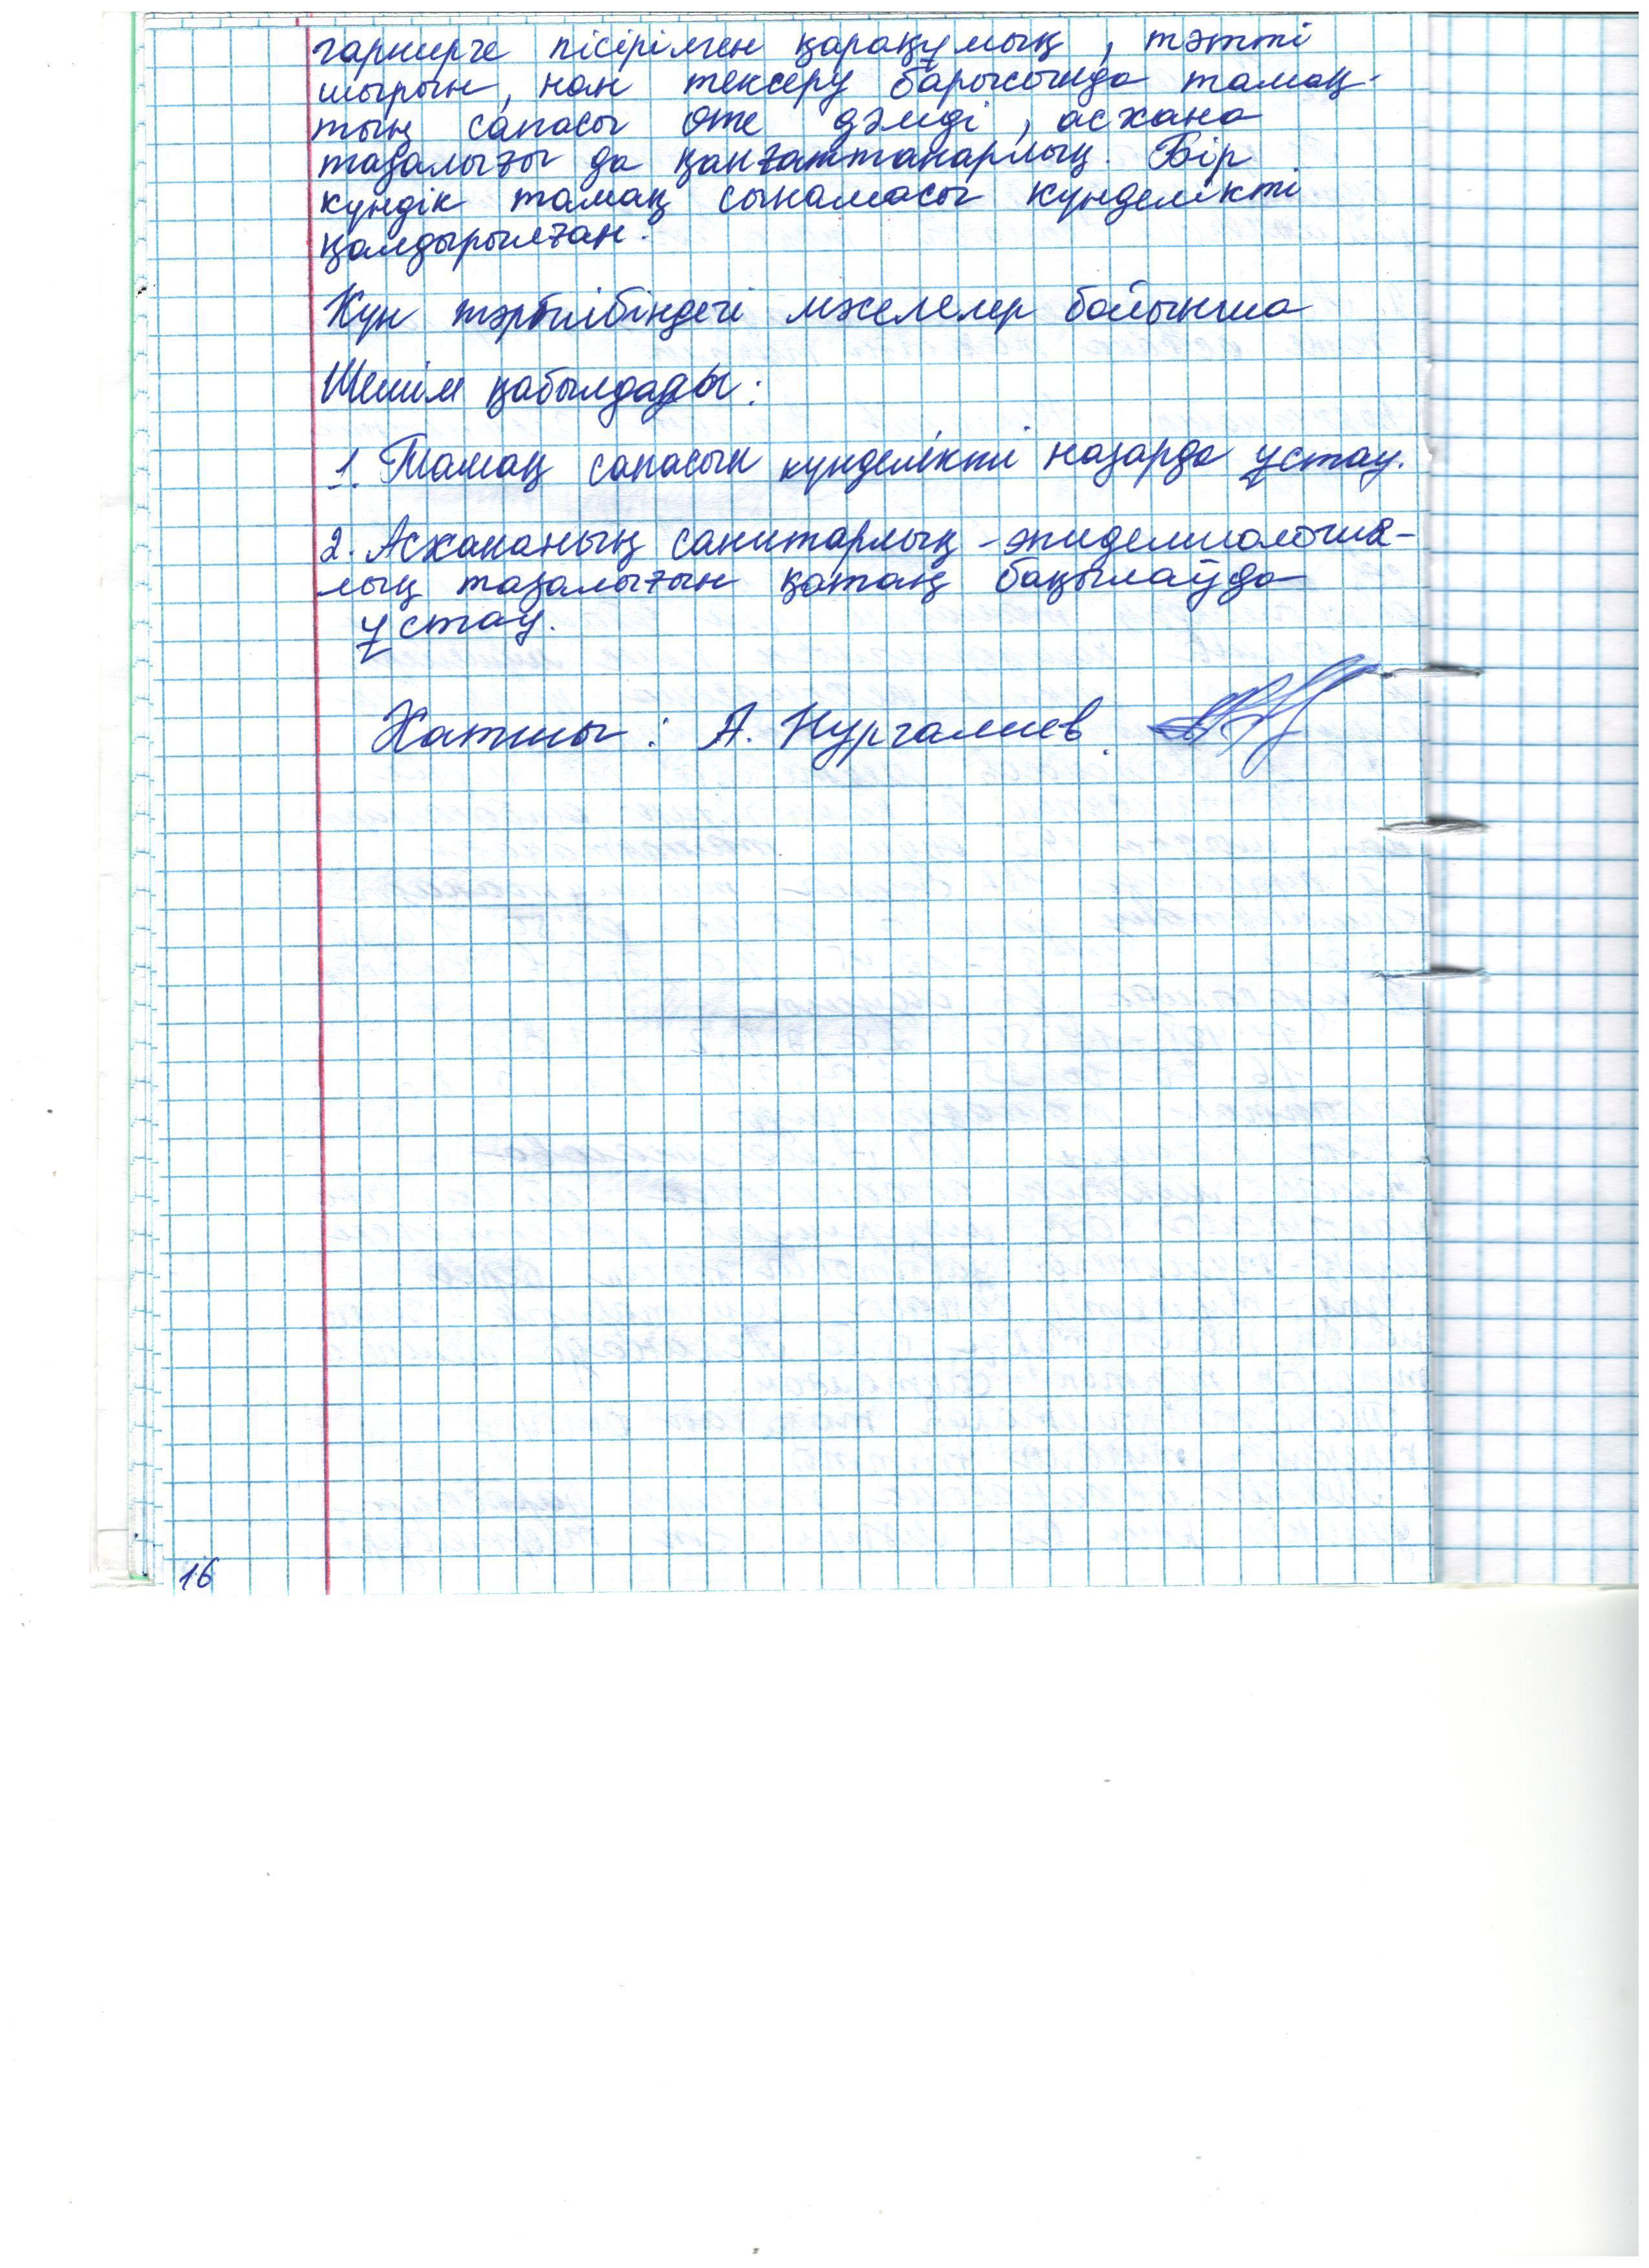 гарнирге пісірілген қарақұмық, тәтті
шырын, нан тексеру барысында тамақ-
тың сапасы өте дәмді, асхана
тазалығы да қанғаттанарлық. Бір
күндік тамақ сынамасы күнделікті
қалдырылған.
Күн тәртібіндегі мәселелер бойынша
Шешім қабылдады:
1. Тамақ сапасын күнделікті назарда ұстау.
2. Асхананың санитарлық-эпидемиология-
лық тазалығын қатаң бақылауда
ұстау.
Хатшы: А. Нургалиев.
16